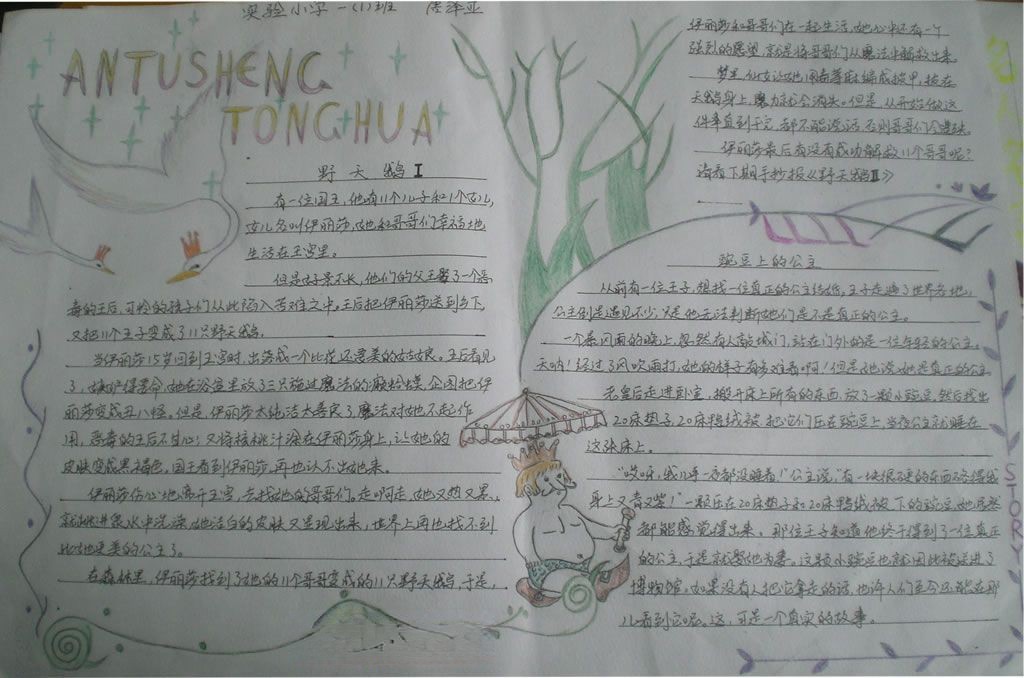 实验小学一(1)班 居泽亚
ANTUSHENG
TONGHUA
野天鹅Ⅰ
有一位国王,他有11个儿子和1个女儿,
女儿名叫伊丽莎,她和哥哥们幸福地
生活在王宫里。
但是好景不长,他们的父王娶了一个恶
毒的王后,可怜的孩子们从此陷入苦难之中,王后把伊丽莎送到乡下,
又把11个王子变成了11只野天鹅。
当伊丽莎15岁回到王宫时,出落成一个比花还要美的姑娘。王后看见
了,嫉妒得要命,她在浴室里放了三只施过魔法的癞蛤蟆,企图把伊
丽莎变成丑八怪。但是,伊丽莎太纯洁太善良了,魔法对她不起作
用,恶毒的王后不甘心,又将核桃汁涂在伊丽莎身上,让她的
皮肤变成黑褐色,国王看到伊丽莎,再也认不出她来。
伊丽莎伤心地离开王宫,去找她的哥哥们。走啊走,她又热又累,
就跳进泉水中洗澡,她洁白的皮肤又呈现出来,世界上再也找不到
比她更美的公主了。
在森林里,伊丽莎找到了她的11个哥哥变成的11只野天鹅,于是,
伊丽莎和哥哥们在一起生活,她心中还有一个
强烈的愿望,就是将哥哥们从魔法中解救出来。
梦里,仙女让她用荨麻编成披甲,披在
天鹅身上,魔力就会消失。但是,从开始做这
件事直到干完,都不能说话,否则哥哥们会遭殃。
伊丽莎最后有没有成功解救11个哥哥呢?
请看下期手抄报《野天鹅Ⅱ》
豌豆上的公主
从前有一位王子,想找一位真正的公主结婚,王子走遍了世界各地,
公主倒是遇见不少,只是他无法判断她们是不是真正的公主。
一个暴风雨的晚上,忽然有人敲城门,站在门外的是一位年轻的公主。
天呐!经过了风吹雨打,她的样子有多难看啊!但是她说她是真正的公主。
老皇后走进卧室,搬开床上所有的东西,放了一颗小豌豆,然后找出
20床垫子,20床鸭绒被,把它们压在豌豆上,当夜公主就睡在
这张床上。
“哎呀,我几乎一夜都没睡着!”公主说,“有一块很硬的东西硌得我
身上又青又紫!”一颗压在20床垫子和20床鸭绒被下的豌豆,她居然
都能感觉得出来,那位王子知道他终于得到了一位真正
的公主,于是就娶她为妻。这颗小豌豆也就因此被送进了
博物馆,如果没有人把它拿走的话,也许人们至今还能在那
儿看到它呢。这,可是一个真实的故事。
STORY